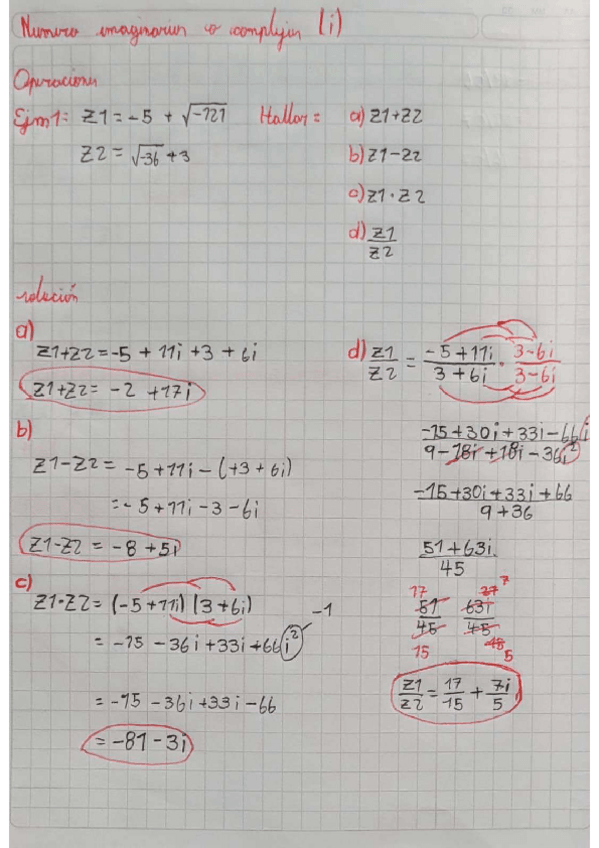 Numero imaginarios o complejos (i)
Operaciones
Ejm1: Z1 = -5 + √-121 Hallar: a) Z1+Z2
Z2 = √-36 + 3 b) Z1-Z2
c) Z1·Z2
d) Z1/Z2
solución
a)
Z1+Z2 = -5 + 11i + 3 + 6i
Z1+Z2 = -2 + 17i
b)
Z1-Z2 = -5 + 11i - (+3 + 6i)
= -5 + 11i - 3 - 6i
Z1-Z2 = -8 + 5i
c)
Z1·Z2 = (-5 + 11i) (3 + 6i)
-1
= -15 - 36i + 33i + 66i²
= -15 - 36i + 33i - 66
= -81 - 3i
d) Z1/Z2 = -5+11i/3+6i · 3-6i/3-6i
-15+30i+33i-66i
9-18i+18i-36i²
-15+30i+33i+66
9+36
51+63i
45
17 7
51/45 63i/45
15 5
Z1/Z2 = 17/15 + 7i/5